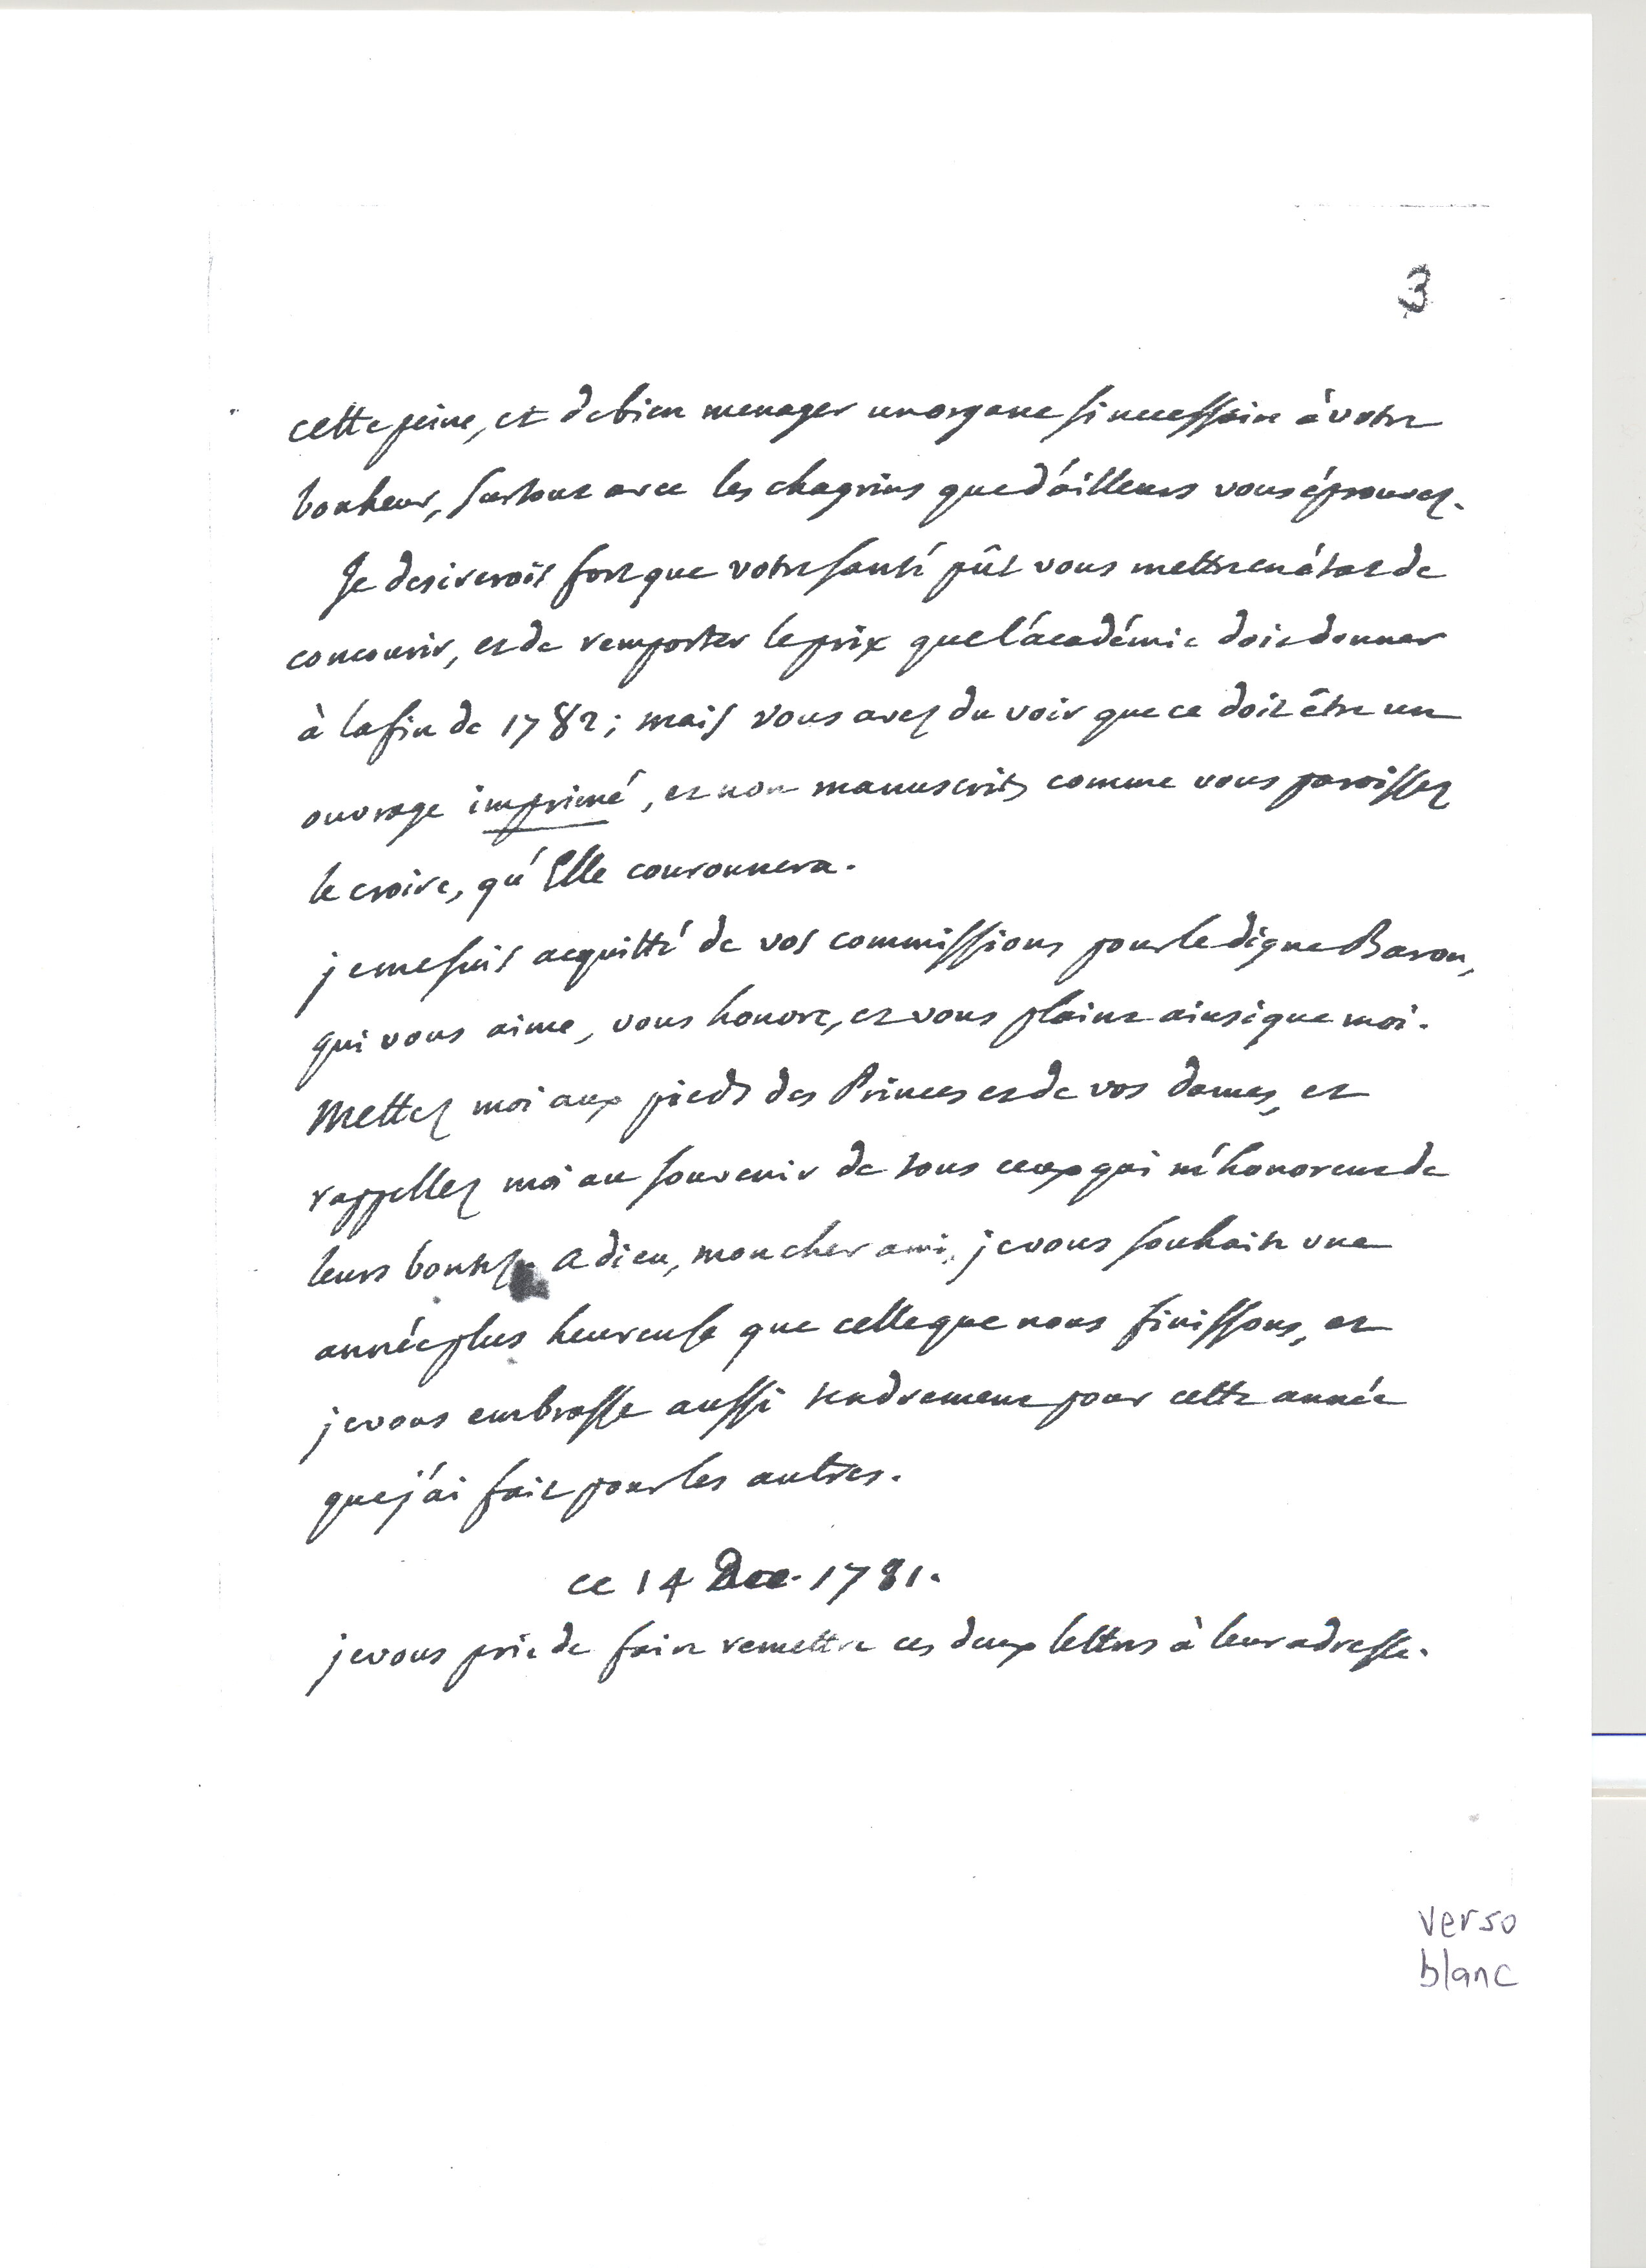 3
cette peine, et de bien menager un organe si necessaire à votre
bonheur, surtout avec les chagrins que d'ailleurs vous éprouvez.
Je desirerois fort que votre santé pût vous mettre en état de
concourir, et de remporter le prix que l'académie doit donner
à la fin de 1782; mais vous avez du voir que ce doit être un
ouvrage imprimé, et non manuscrit, comme vous paroissez
le croire, qu'Elle couronnera.
je me suis acquitté de vos commissions pour le digne Baron,
qui vous aime, vous honore, et vous plaint ainsi que moi.
Mettez moi aux pieds des Princes et de vos dames, et
rappellez moi au souvenir de tous ceux qui m'honorent de
leurs bontez. adieu, mon cher ami, je vous souhaite une
année plus heureuse que celle que nous finissons, et
je vous embrasse aussi tendrement pour cette année
que j'ai fait pour les autres.
ce 14 Dec. 1781.
je vous prie de faire remettre ces deux lettres à leur adresse.
verso
blanc